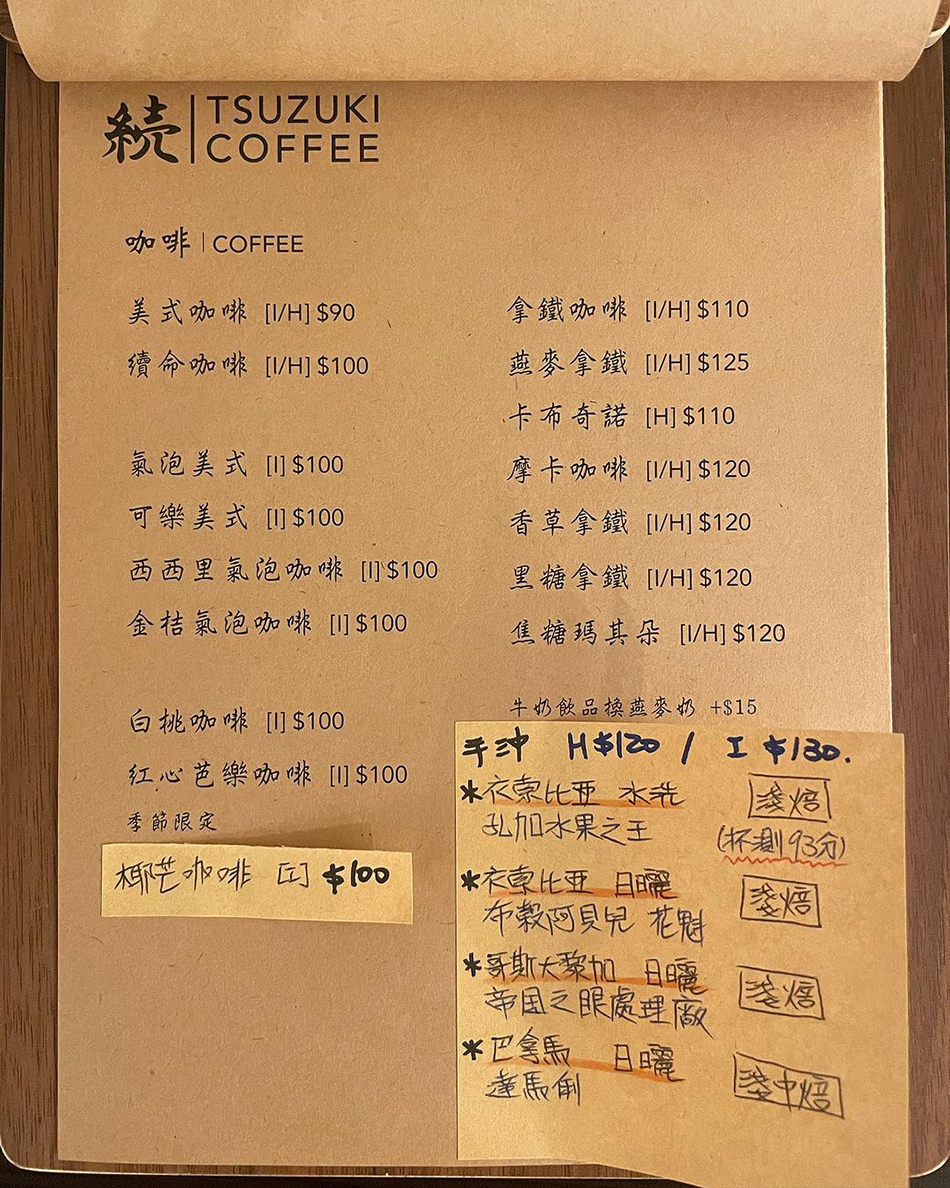 続 | TSUZUKI
COFFEE
咖啡 | COFFEE
美式咖啡 [I/H] $90
續命咖啡 [I/H] $100
氣泡美式 [I] $100
可樂美式 [I] $100
西西里氣泡咖啡 [I] $100
金桔氣泡咖啡 [I] $100
白桃咖啡 [I] $100
紅心芭樂咖啡 [I] $100
季節限定
椰芒咖啡 [I] $100
拿鐵咖啡 [I/H] $110
燕麥拿鐵 [I/H] $125
卡布奇諾 [H] $110
摩卡咖啡 [I/H] $120
香草拿鐵 [I/H] $120
黑糖拿鐵 [I/H] $120
焦糖瑪其朵 [I/H] $120
牛奶飲品換燕麥奶 +$15
手沖 H $120 / I $130.
*衣索比亞 水洗 淺焙
孔加水果之王 (杯測93分)
*衣索比亞 日曬 淺焙
布穀阿貝兒 花魁
*哥斯大黎加 日曬 淺焙
帝国之眼處理廠
*巴拿馬 日曬 淺中焙
達馬俐